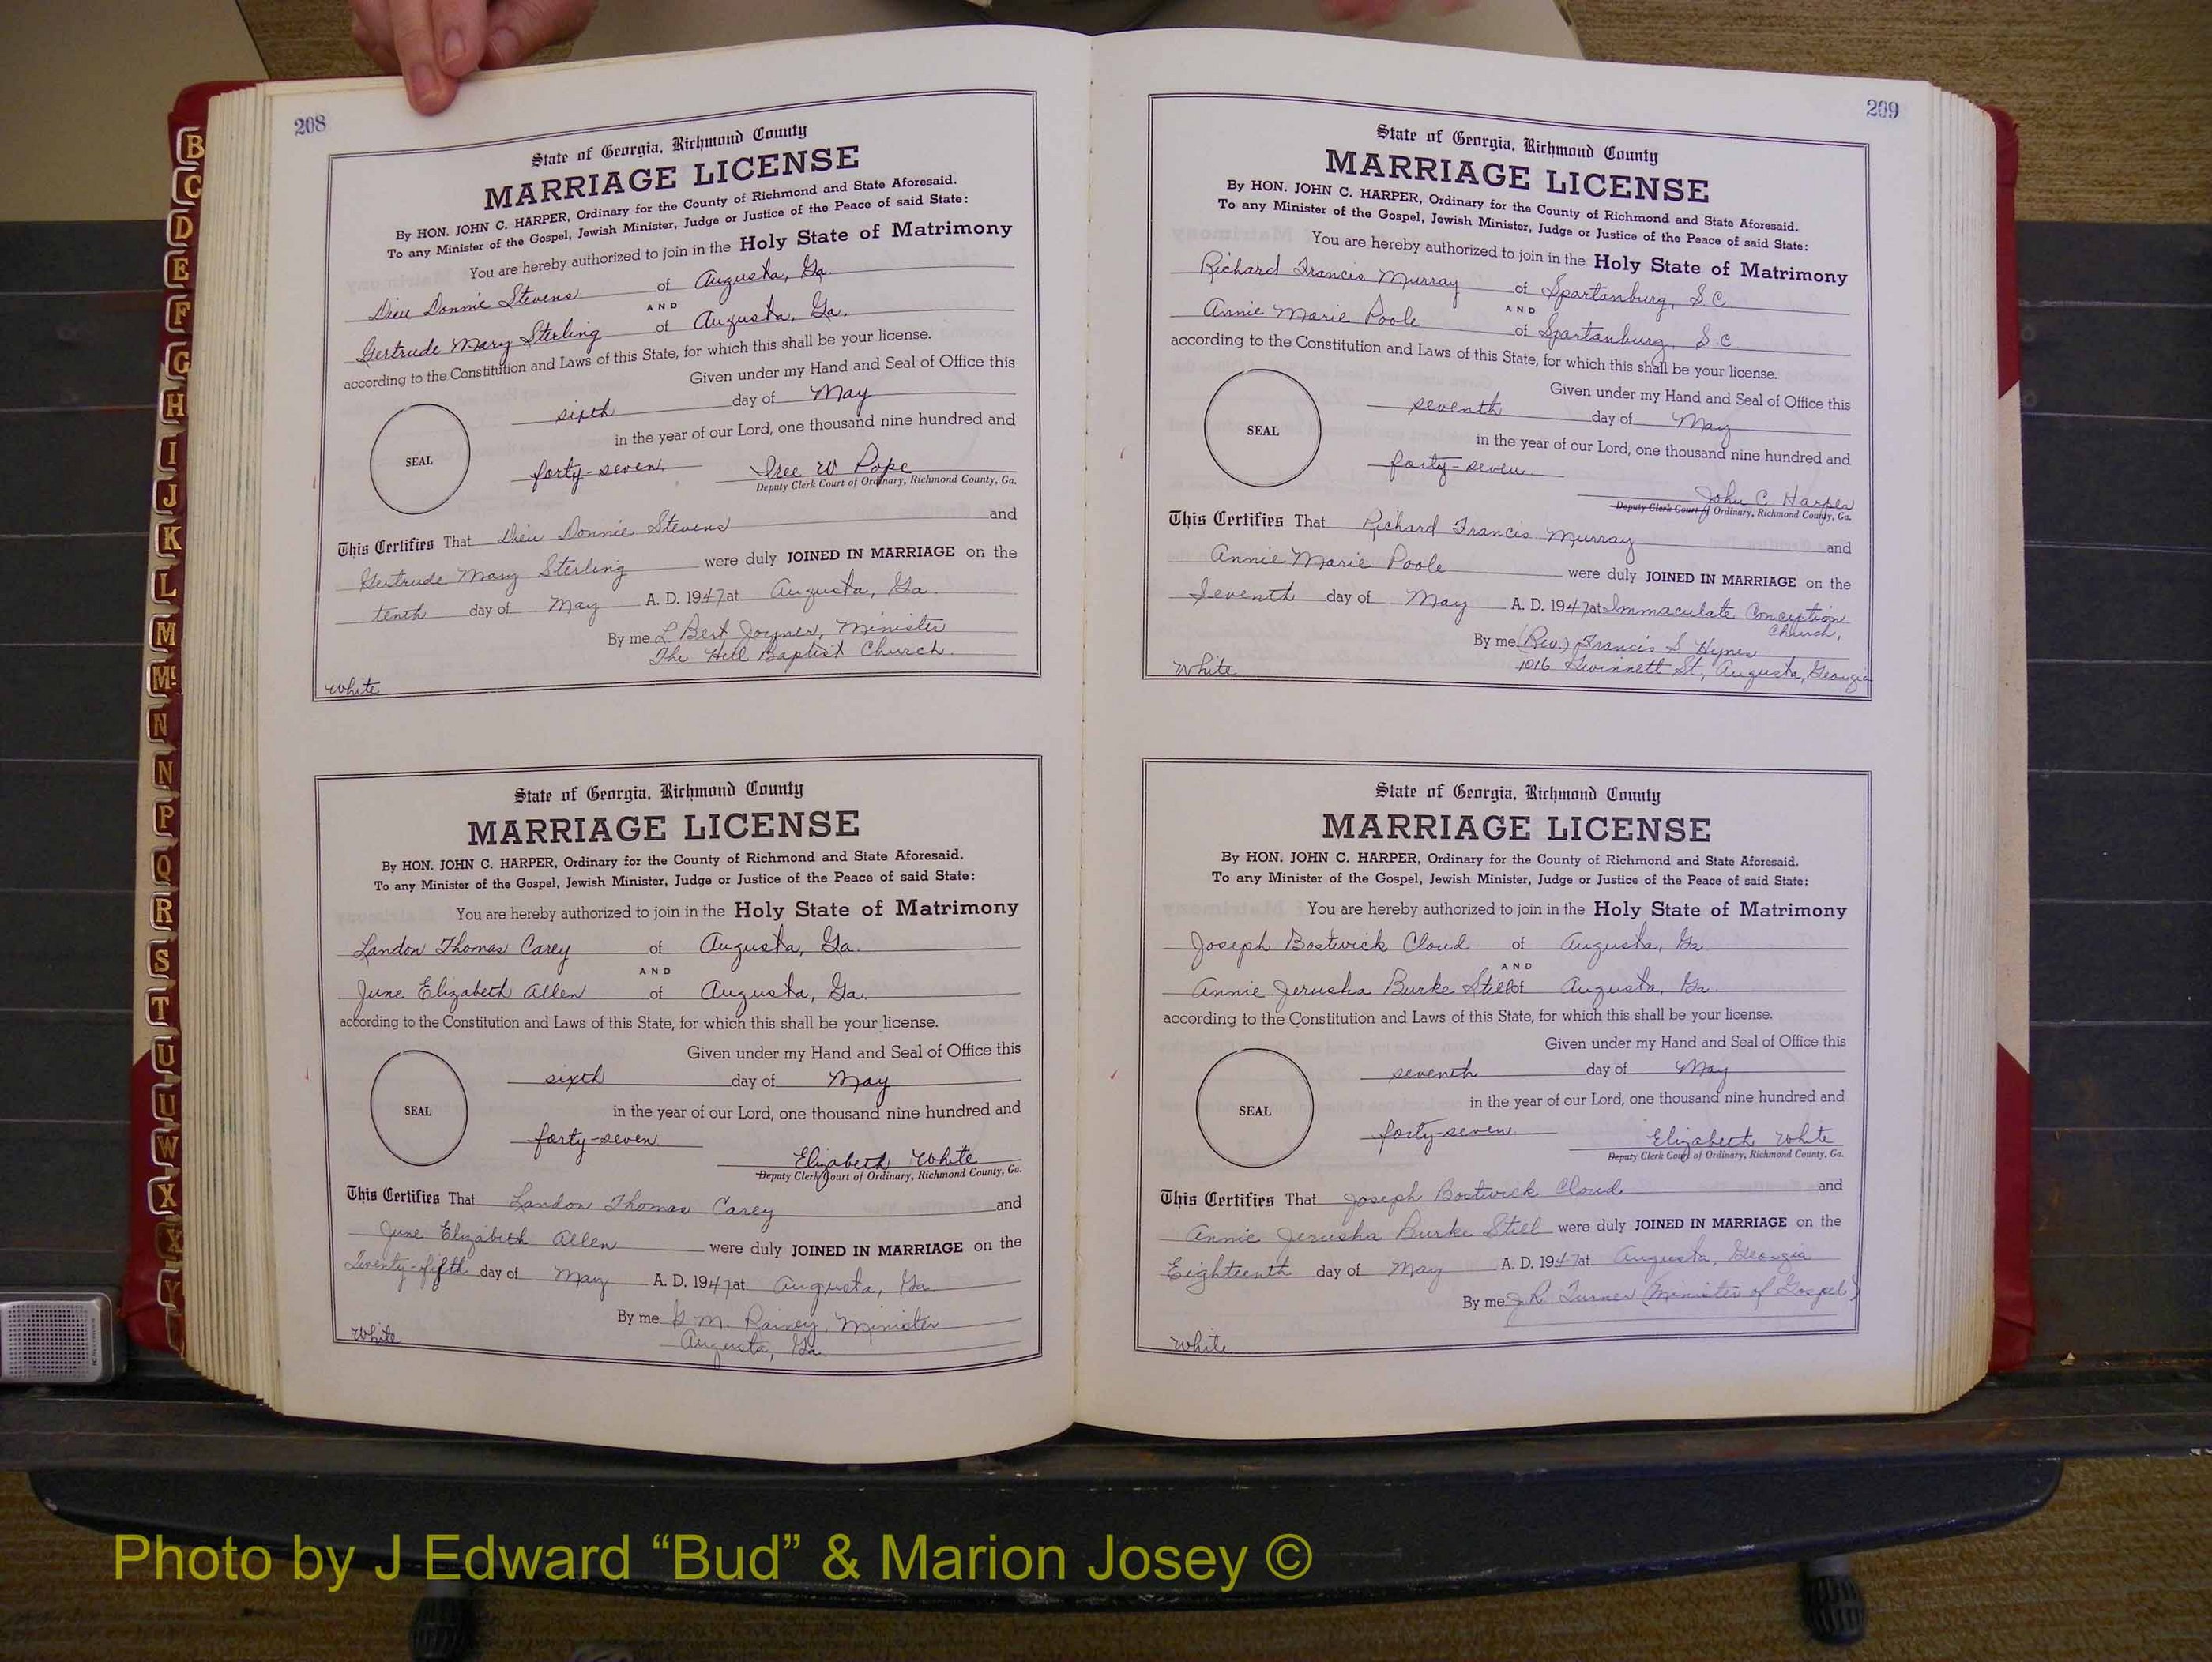 208
State of Georgia, Richmond County
MARRIAGE LICENSE
By HON. JOHN C. HARPER, Ordinary for the County of Richmond and State Aforesaid.
To any Minister of the Gospel, Jewish Minister, Judge or Justice of the Peace of said State:
You are hereby authorized to join in the Holy State of Matrimony
Dieu Donnie Stevens of Augusta, Ga.
AND
Gertrude Mary Sterling of Augusta, Ga.
according to the Constitution and Laws of this State, for which this shall be your license.
Given under my Hand and Seal of Office this
sixth day of May
in the year of our Lord, one thousand nine hundred and
SEAL
forty-seven. Iree W Pope
Deputy Clerk Court of Ordinary, Richmond County, Ga.
This Certifies That Dieu Donnie Stevens and
Gertrude Mary Sterling were duly JOINED IN MARRIAGE on the
tenth day of May A. D. 1947 at Augusta, Ga.
By me L Bert Joyner, Minister
The Hill Baptist Church.
White
State of Georgia, Richmond County
MARRIAGE LICENSE
By HON. JOHN C. HARPER, Ordinary for the County of Richmond and State Aforesaid.
To any Minister of the Gospel, Jewish Minister, Judge or Justice of the Peace of said State:
You are hereby authorized to join in the Holy State of Matrimony
Landon Thomas Carey of Augusta, Ga.
AND
June Elizabeth Allen of Augusta, Ga.
according to the Constitution and Laws of this State, for which this shall be your license.
Given under my Hand and Seal of Office this
sixth day of May
SEAL
in the year of our Lord, one thousand nine hundred and
forty-seven. Elizabeth White
Deputy Clerk Court of Ordinary, Richmond County, Ga.
This Certifies That Landon Thomas Carey and
June Elizabeth Allen were duly JOINED IN MARRIAGE on the
Twenty-fifth day of May A. D. 1947 at Augusta, Ga.
By me G. M. Rainey, Minister
Augusta, Ga.
White
209
State of Georgia, Richmond County
MARRIAGE LICENSE
By HON. JOHN C. HARPER, Ordinary for the County of Richmond and State Aforesaid.
To any Minister of the Gospel, Jewish Minister, Judge or Justice of the Peace of said State:
You are hereby authorized to join in the Holy State of Matrimony
Richard Francis Murray of Spartanburg, S.C
AND
Annie Marie Poole of Spartanburg, S.C.
according to the Constitution and Laws of this State, for which this shall be your license.
Given under my Hand and Seal of Office this
seventh day of May
SEAL
in the year of our Lord, one thousand nine hundred and
forty-seven
John C. Harper
Deputy Clerk Court of Ordinary, Richmond County, Ga.
This Certifies That Richard Francis Murray and
Annie Marie Poole were duly JOINED IN MARRIAGE on the
Seventh day of May A. D. 1947 at Immaculate Conception
Church,
By me (Rev.) Francis S Hynes
1016 Gwinnett St, Augusta, Georgia
White
State of Georgia, Richmond County
MARRIAGE LICENSE
By HON. JOHN C. HARPER, Ordinary for the County of Richmond and State Aforesaid.
To any Minister of the Gospel, Jewish Minister, Judge or Justice of the Peace of said State:
You are hereby authorized to join in the Holy State of Matrimony
Joseph Bostwick Cloud of Augusta, Ga
AND
Annie Jerusha Burke Still of Augusta, Ga.
according to the Constitution and Laws of this State, for which this shall be your license.
Given under my Hand and Seal of Office this
seventh day of May
SEAL
in the year of our Lord, one thousand nine hundred and
forty-seven. Elizabeth White
Deputy Clerk Court of Ordinary, Richmond County, Ga.
This Certifies That Joseph Bostwick Cloud and
Annie Jerusha Burke Still were duly JOINED IN MARRIAGE on the
Eighteenth day of May A. D. 1947 at Augusta, Georgia
By me J. R. Turner (Minister of Gospel)
White
B
C
D
E
F
G
H
I
J
K
L
M
Mc
N
N
P
Q
R
S
T
U
U
W
X
X
Y
Photo by J Edward “Bud” & Marion Josey ©